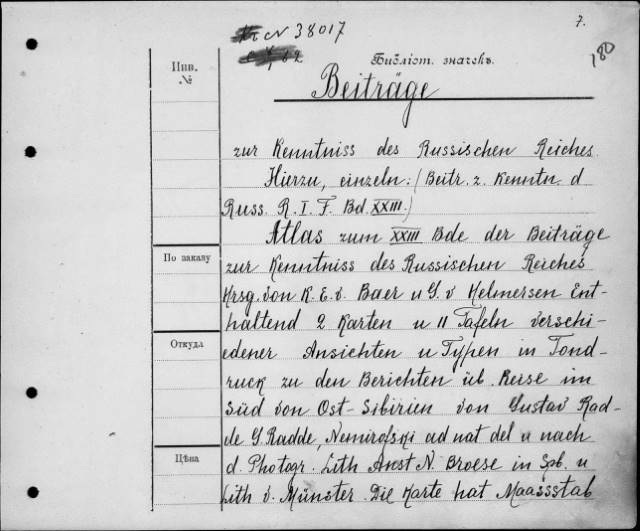 7.
Kr № 38017
180
Инв.
№
Библіот. значекъ.
Beiträge
zur Kenntniss des Russischen Reiches.
Hierzu, einzeln: (Beitr. z. Kenntn. d
Russ. R. I. F. Bd. XXIII.)
Atlas zum XXIII Bde der Beiträge
По заказу
zur Kenntniss des Russischen Reiches
Hrsg. von K. E. v. Baer u G. v Helmersen Ent-
haltend 2 Karten u 11 Tafeln verschi-
Откуда
edener Ansichten u Typen in Tond-
ruck zu den Berichten üb. Reise im
Süd von Ost-Sibirien von Gustav Rad-
de G. Radde, Nemirofski ad nat del u nach
Цѣна
d. Photogr. Lith Anst N. Broese in Spb. u
Lith v. Münster. Die Karte hat Maassstab